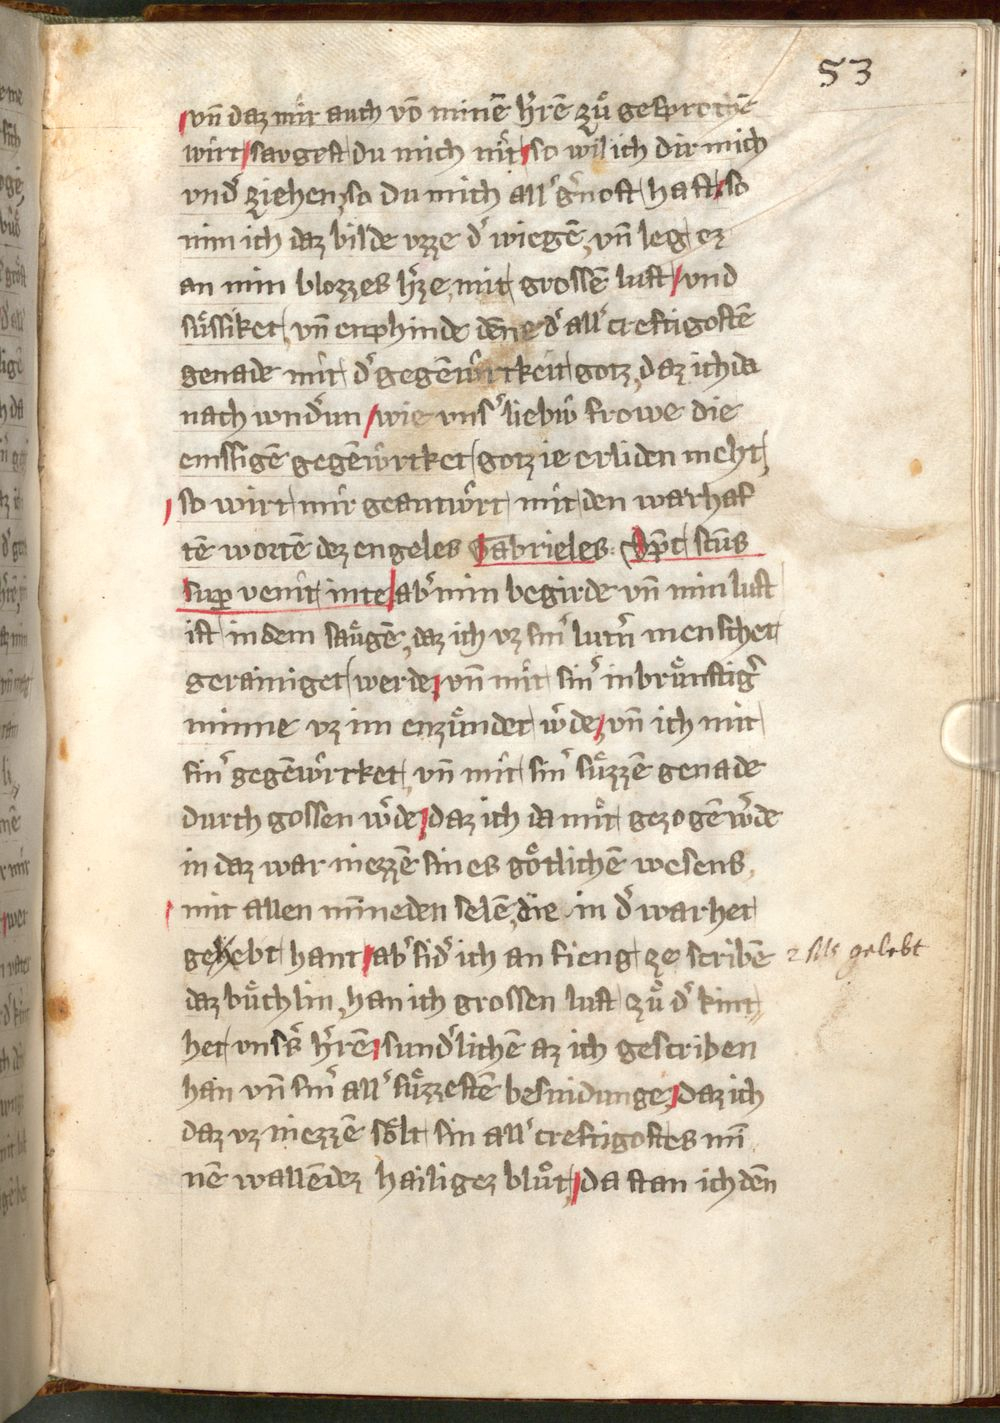 53
vn̄ daz mir auch vō minē h̓rē zů gesprochē
wirt / saugest du mich nit / so wil ich dir mich
vnd̓ ziehen, so du mich all̓ g̓nost hast / so
nim ich daz bilde vzze d̓ wiegē, vn̄ leg ez
an min blozzes h̓ze, mit grossē lust / vnd
sůssiket, vn̄ enphinde dēne d̓ all̓ creftigostē
genade mit d̓ gegēwrtkeit gotz, daz ich da
nach wnd̓un / wie vns̓ liebw̓ frowe die
emssigē gegēwrtket gotz ie erliden meht,
so wirt mir geantwrt mit den warhaf
tē wortē dez engeles Gabrieles. Sp̄c sc̄us
sup̱ venit inte / ab̓ min begirde vn̄ min lust
ist in dem saugē, daz ich vz sin̓ lut̓n menschet
gerainiget werde, vn̄ mit sin̓ inbrůnstig̓
minne vz im enzůndet w̓de, vn̄ ich mit
sin̓ gegēwrtket, vn̄ mit sin̓ sůzzē genade
durch gossen w̓de / daz ich da mit gezogē w̓de
in daz war niezzē sines gőtlichē wesens,
mit allen mīneden selē, die in d̓ warhet
gehebt hant / ab̓ sid̓ ich an fieng ze scribē
2 sils gelebt
daz bůchlin, han ich grossen lust zů d̓ kint
het vns̓s h̓rē / sund̓lichē az ich gescriben
han vn̄ sin̓ all̓ sůzzestē besnidunge / daz ich
daz vz niezzē sőlt sin all̓ creftigostes mī
nē wallēdez hailigez blůt, / da stan ich dēn